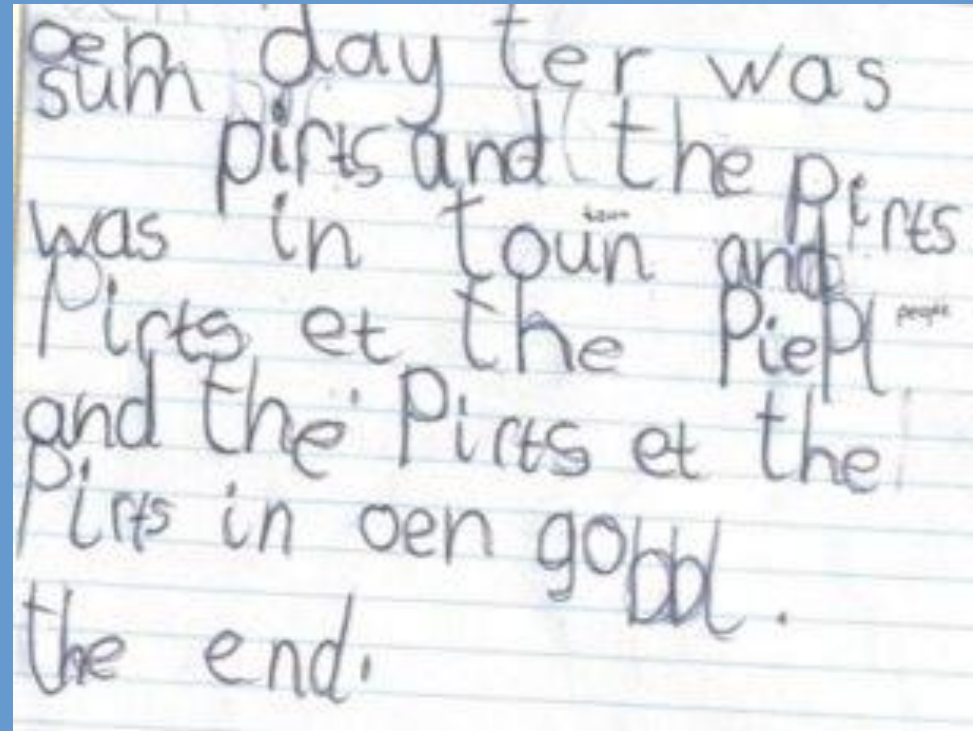 oen day ter was
sum
pirts and the pirts
town
was in toun and
Pirts et the Piepl people
and the Pirts et the
Pirts in oen gobbl.
the end.